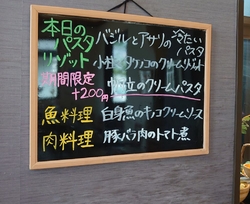 本日の パスタ バジルとアサリの冷たいパスタ
リゾット 小柱とタケノコのクリームリゾット
期間限定 +200円 帆立のクリームパスタ
魚料理 白身魚のキノコクリームソース
肉料理 豚バラ肉のトマト煮